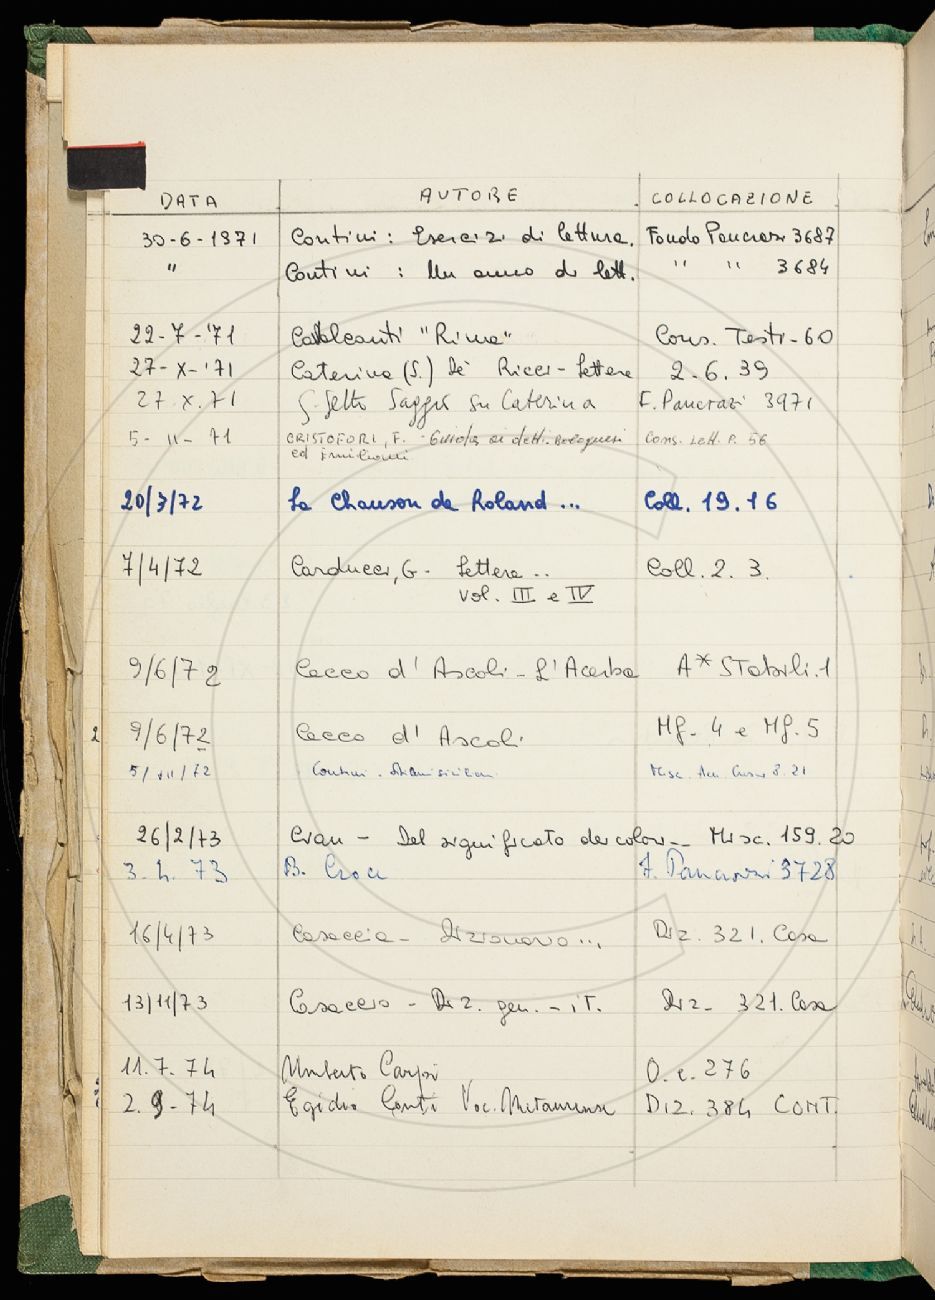 DATA AUTORE COLLOCAZIONE
30-6-1971 Contini: Esercizi di lettura. Fondo Pancrazi 3687
" Contini: Un anno di lett. " " 3684
22-7-'71 Cavalcanti "Rime" Cons. Testi-60
27-X-'71 Caterina (S.) De' Ricci-Lettere 2.6.39
27.X.71 G. Getto Saggio su Caterina F. Pancrazi 3971
5-11-71 CRISTOFORI, F. - Guida ai detti bolognesi Cons. Lett. P. 56
ed emiliani
20/3/72 La Chanson de Roland... Coll. 19.16
7/4/72 Carducci, G- Lettere.. Coll. 2. 3.
vol. III e IV
9/6/72 Cecco d'Ascoli-L'Acerba A* STabili.1
2 9/6/72 Cecco d'Ascoli Mf. 4 e Mf. 5
5/VII/72 Contini. Misc. 8.21
26/2/73 Cian - Del significato dei colori-- Misc. 159.20
3.4.73 B. Croce F. Pancrazi 3728
16/4/73 Casaccia- Dizionario... Diz. 321. Casa
13/11/73 Casaccia - Diz. gen.-iT. Diz- 321. Casa
11.7.74 Umberto Carpi O.c.276
2.9-74 Egidio Conti Voc. Metaurense Diz. 384 CONT.